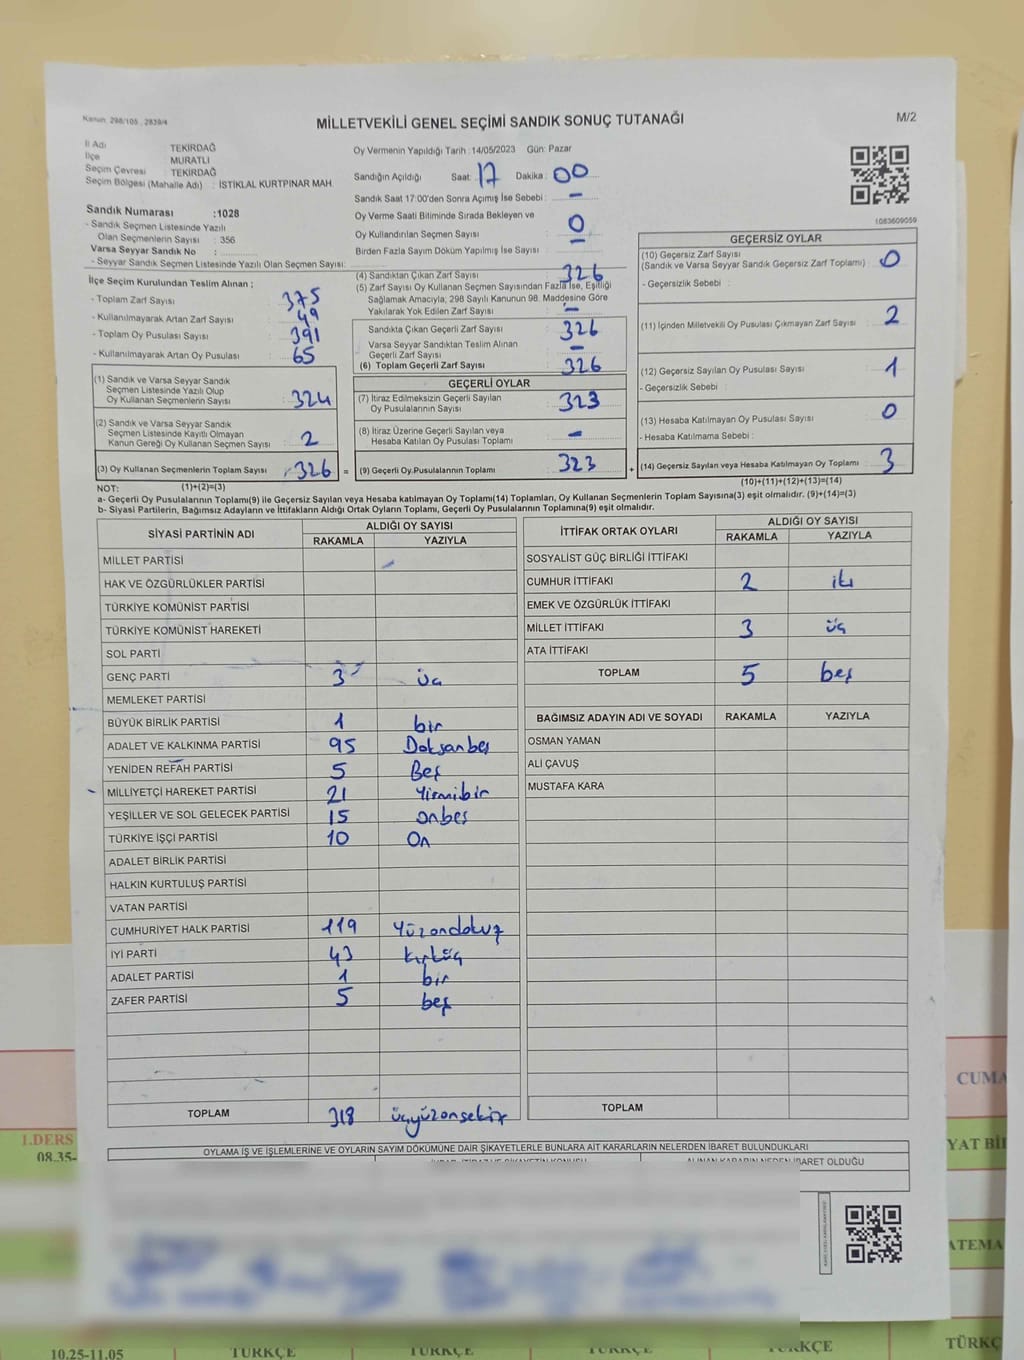 Kanun: 298/105, 2839/4
MİLLETVEKİLİ GENEL SEÇİMİ SANDIK SONUÇ TUTANAĞI
M/2
İl Adı TEKİRDAĞ
İlçe MURATLI
Seçim Çevresi : TEKİRDAĞ
Seçim Bölgesi (Mahalle Adı) : İSTİKLAL KURTPINAR MAH.
Sandık Numarası :1028
- Sandık Seçmen Listesinde Yazılı
Olan Seçmenlerin Sayısı : 356
Varsa Seyyar Sandık No :
- Seyyar Sandık Seçmen Listesinde Yazılı Olan Seçmen Sayısı:
Oy Vermenin Yapıldığı Tarih :14/05/2023 Gün: Pazar
Sandığın Açıldığı Saat: 17 Dakika : 00
Sandık Saat 17:00'den Sonra Açımış İse Sebebi : -
Oy Verme Saati Bitiminde Sırada Bekleyen ve
Oy Kullandırılan Seçmen Sayısı : 0
Birden Fazla Sayım Döküm Yapılmış İse Sayısı : -
1083609059
İlçe Seçim Kurulundan Teslim Alınan ;
- Toplam Zarf Sayısı : 375
- Kullanılmayarak Artan Zarf Sayısı : 49
- Toplam Oy Pusulası Sayısı : 391
- Kullanılmayarak Artan Oy Pusulası : 65
(1) Sandık ve Varsa Seyyar Sandık
Seçmen Listesinde Yazılı Olup
Oy Kullanan Seçmenlerin Sayısı : 324
(2) Sandık ve Varsa Seyyar Sandık
Seçmen Listesinde Kayıtlı Olmayan
Kanun Gereği Oy Kullanan Seçmen Sayısı : 2
(3) Oy Kullanan Seçmenlerin Toplam Sayısı : 326 =
(1)+(2)=(3)
(4) Sandıktan Çıkan Zarf Sayısı : 326
(5) Zarf Sayısı Oy Kullanan Seçmen Sayısından Fazla İse, Eşitliği
Sağlamak Amacıyla, 298 Sayılı Kanunun 98. Maddesine Göre
Yakılarak Yok Edilen Zarf Sayısı : -
Sandıkta Çıkan Geçerli Zarf Sayısı : 326
Varsa Seyyar Sandıktan Teslim Alınan
Geçerli Zarf Sayısı : -
(6) Toplam Geçerli Zarf Sayısı : 326
GEÇERLİ OYLAR
(7) İtiraz Edilmeksizin Geçerli Sayılan
Oy Pusulalarının Sayısı : 323
(8) İtiraz Üzerine Geçerli Sayılan veya
Hesaba Katılan Oy Pusulası Toplamı : -
(9) Geçerli Oy Pusulalarının Toplamı : 323 +
GEÇERSİZ OYLAR
(10) Geçersiz Zarf Sayısı
(Sandık ve Varsa Seyyar Sandık Geçersiz Zarf Toplamı) : 0
- Geçersizlik Sebebi :
(11) İçinden Milletvekili Oy Pusulası Çıkmayan Zarf Sayısı : 2
(12) Geçersiz Sayılan Oy Pusulası Sayısı : 1
- Geçersizlik Sebebi :
(13) Hesaba Katılmayan Oy Pusulası Sayısı : 0
- Hesaba Katılmama Sebebi :
(14) Geçersiz Sayılan veya Hesaba Katılmayan Oy Toplamı : 3
(10)+(11)+(12)+(13)=(14)
NOT:
a- Geçerli Oy Pusulalarının Toplamı(9) ile Geçersiz Sayılan veya Hesaba katılmayan Oy Toplamı(14) Toplamları, Oy Kullanan Seçmenlerin Toplam Sayısına(3) eşit olmalıdır. (9)+(14)=(3)
b- Siyasi Partilerin, Bağımsız Adayların ve İttifakların Aldığı Ortak Oyların Toplamı, Geçerli Oy Pusulalarının Toplamına(9) eşit olmalıdır.
SİYASİ PARTİNİN ADI ALDIĞI OY SAYISI
RAKAMLA YAZIYLA
MİLLET PARTİSİ
HAK VE ÖZGÜRLÜKLER PARTİSİ
TÜRKİYE KOMÜNİST PARTİSİ
TÜRKİYE KOMÜNİST HAREKETİ
SOL PARTİ
GENÇ PARTİ 3 üç
MEMLEKET PARTİSİ
BÜYÜK BİRLİK PARTİSİ 1 bir
ADALET VE KALKINMA PARTİSİ 95 Doksanbeş
YENİDEN REFAH PARTİSİ 5 Beş
MİLLİYETÇİ HAREKET PARTİSİ 21 Yirmibir
YEŞİLLER VE SOL GELECEK PARTİSİ 15 onbeş
TÜRKİYE İŞÇİ PARTİSİ 10 On
ADALET BİRLİK PARTİSİ
HALKIN KURTULUŞ PARTİSİ
VATAN PARTİSİ
CUMHURİYET HALK PARTİSİ 119 Yüzondokuz
İYİ PARTİ 43 kırküç
ADALET PARTİSİ 1 bir
ZAFER PARTİSİ 5 beş
TOPLAM 318 üçyüzonsekiz
İTTİFAK ORTAK OYLARI ALDIĞI OY SAYISI
RAKAMLA YAZIYLA
SOSYALİST GÜÇ BİRLİĞİ İTTİFAKI
CUMHUR İTTİFAKI 2 iki
EMEK VE ÖZGÜRLÜK İTTİFAKI
MİLLET İTTİFAKI 3 üç
ATA İTTİFAKI
TOPLAM 5 beş
BAĞIMSIZ ADAYIN ADI VE SOYADI RAKAMLA YAZIYLA
OSMAN YAMAN
ALİ ÇAVUŞ
MUSTAFA KARA
TOPLAM
OYLAMA İŞ VE İŞLEMLERİNE VE OYLARIN SAYIM DÖKÜMÜNE DAİR ŞİKAYETLERLE BUNLARA AİT KARARLARIN NELERDEN İBARET BULUNDUKLARI
ALINAN KARARIN NEDEN İBARET OLDUĞU
1.DERS
08.35-
CUMA
YAT Bİ
ATEMA
10.25-11.05 TÜRKÇE TÜRKÇE TÜRKÇE TÜRKÇE TÜRKÇ